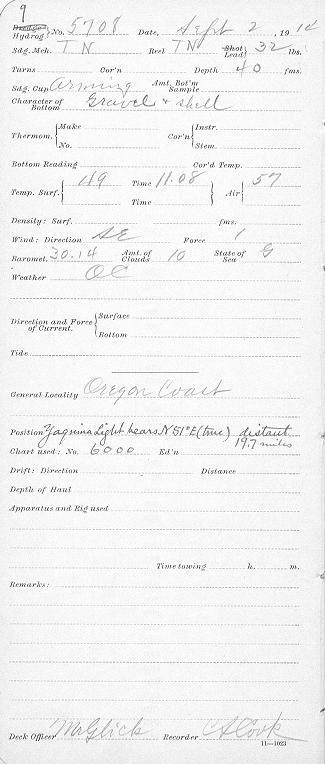 9
Dredge Hydrog. No. 5708 Date, Sept 2, 1914
Sdg. Mch. TN Reel TN Shot Lead 32 lbs.
Turns Cor'n Depth 40 fms.
Sdg. Cup Arming Amt. Bot'm Sample
Character of Bottom Gravel + shell
Thermom. Make No. Cor'n Instr. Stem.
Bottom Reading Cor'd Temp.
Temp. Surf. 49 Time 11.08 Air 57
Time
Density: Surf. fms.
Wind: Direction SE Force 1
Baromet. 30.14 Amt. of Clouds 10 State of Sea G
Weather OC
Direction and Force of Current. Surface
Bottom
Tide
General Locality Oregon Coast
Position Yaquina Light bears N 51° E (true) distant
19.7 miles
Chart used: No. 6000 Ed'n
Drift: Direction Distance
Depth of Haul
Apparatus and Rig used
Time towing h. m.
Remarks:
Deck Officer McGlick Recorder CSCook
11—1023